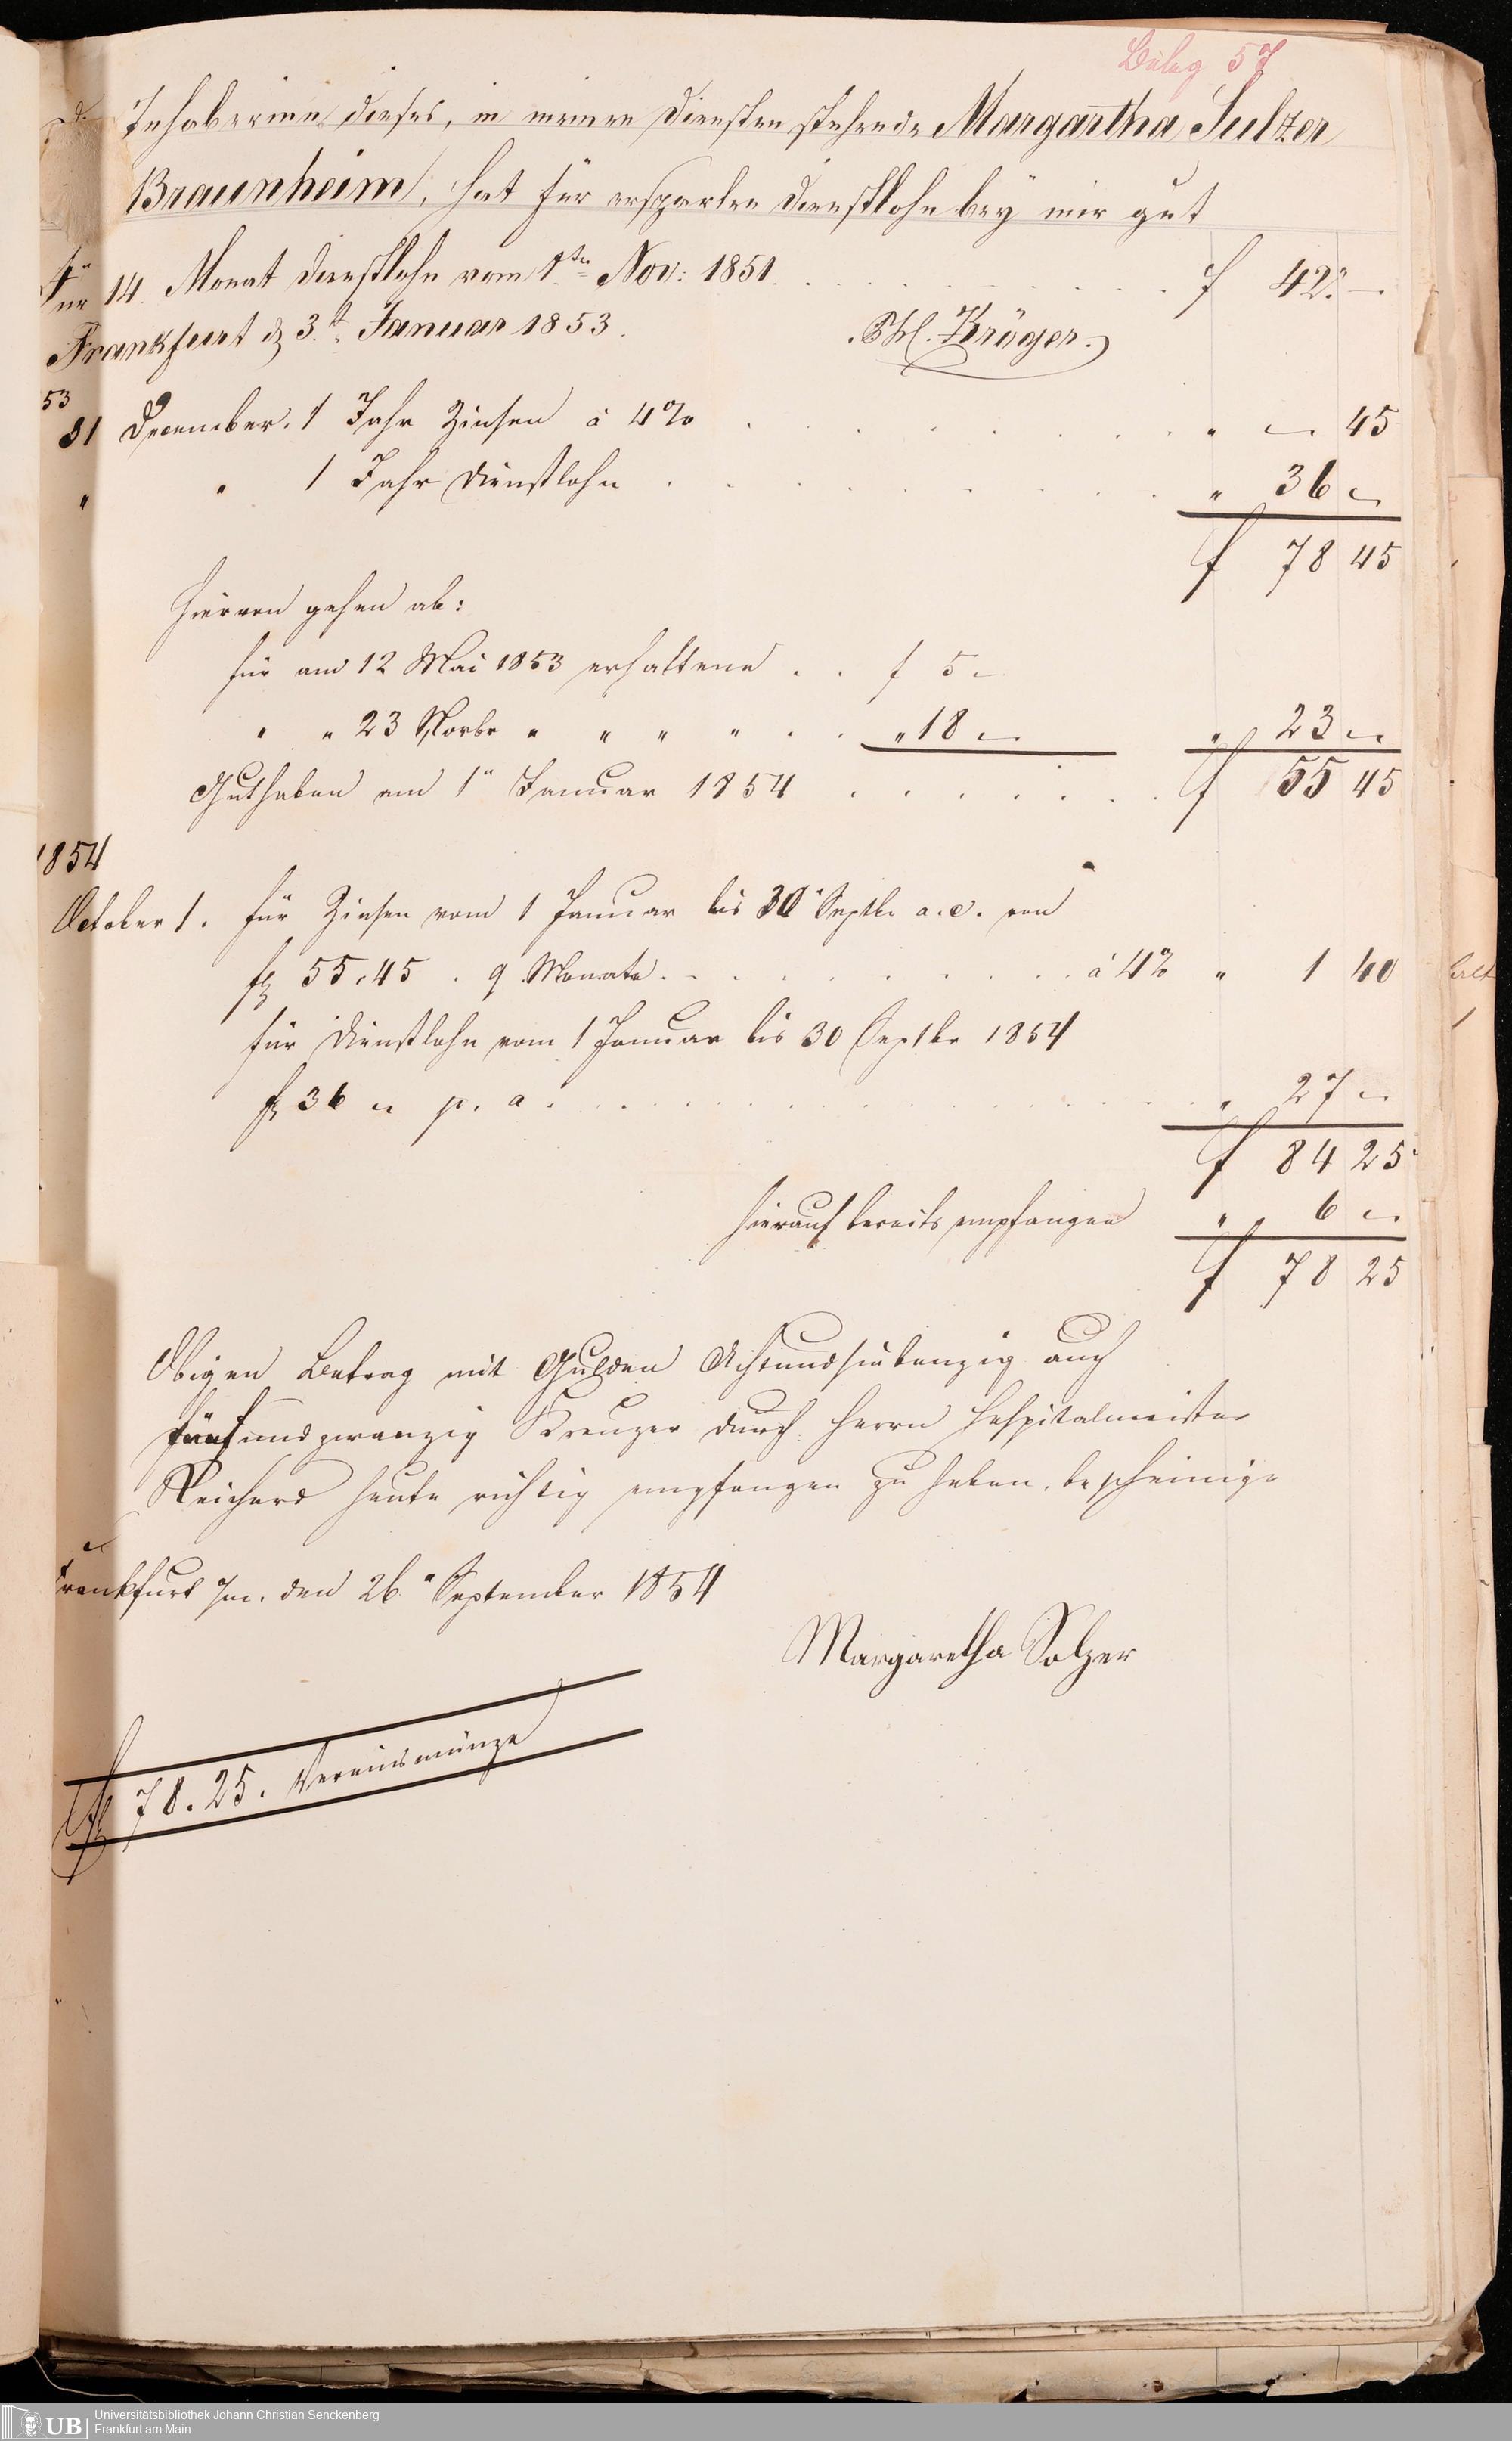 Beleg 57
Inhaberinn dieses, in meinen Diensten stehende Margartha Sulzer
Braunheim, hat für ersparten Dienstlohn bey mir gut
Für 14. Monat Dienstlohn vom 1ten Nov: 1851. f 42.,—.
Frankfurt d 3t Januar 1853. Kröger.
53
31 December. 1 Jahr Zinsen à 4% " — 45
" " 1 Jahr Dienstlohn " 36 —
f 78 45
Hiervon gehen ab:
für am 12 Mai 1853 erhaltene . . f 5 —
" " 23 Novbr " " " " . . " 18 — " 23 —
Guthaben am 1" Januar 1854 f 55 45
1854
October 1. für Zinsen vom 1 Januar bis 30" Septbr a. c. von
fl 55.45 . 9 Monate. à 4% " 1 40
für Dienstlohn vom 1 Januar bis 30 Septbr 1854
fl 36 — p. a. " 27 —
f 84 25
hierauf bereits empfangen " 6 —
f 78 25
Obigen Betrag mit Gulden Achtundsiebenzig auch
fünfundzwanzig Kreuzer durch Herrn Hospitalmeister
Reichard heute richtig empfangen zu haben, bescheinige
Frankfurt /m. den 26." September 1854
Margaretha Solzer
fl 78.25. Vereinsmünze
UB
Universitätsbibliothek Johann Christian Senckenberg
Frankfurt am Main